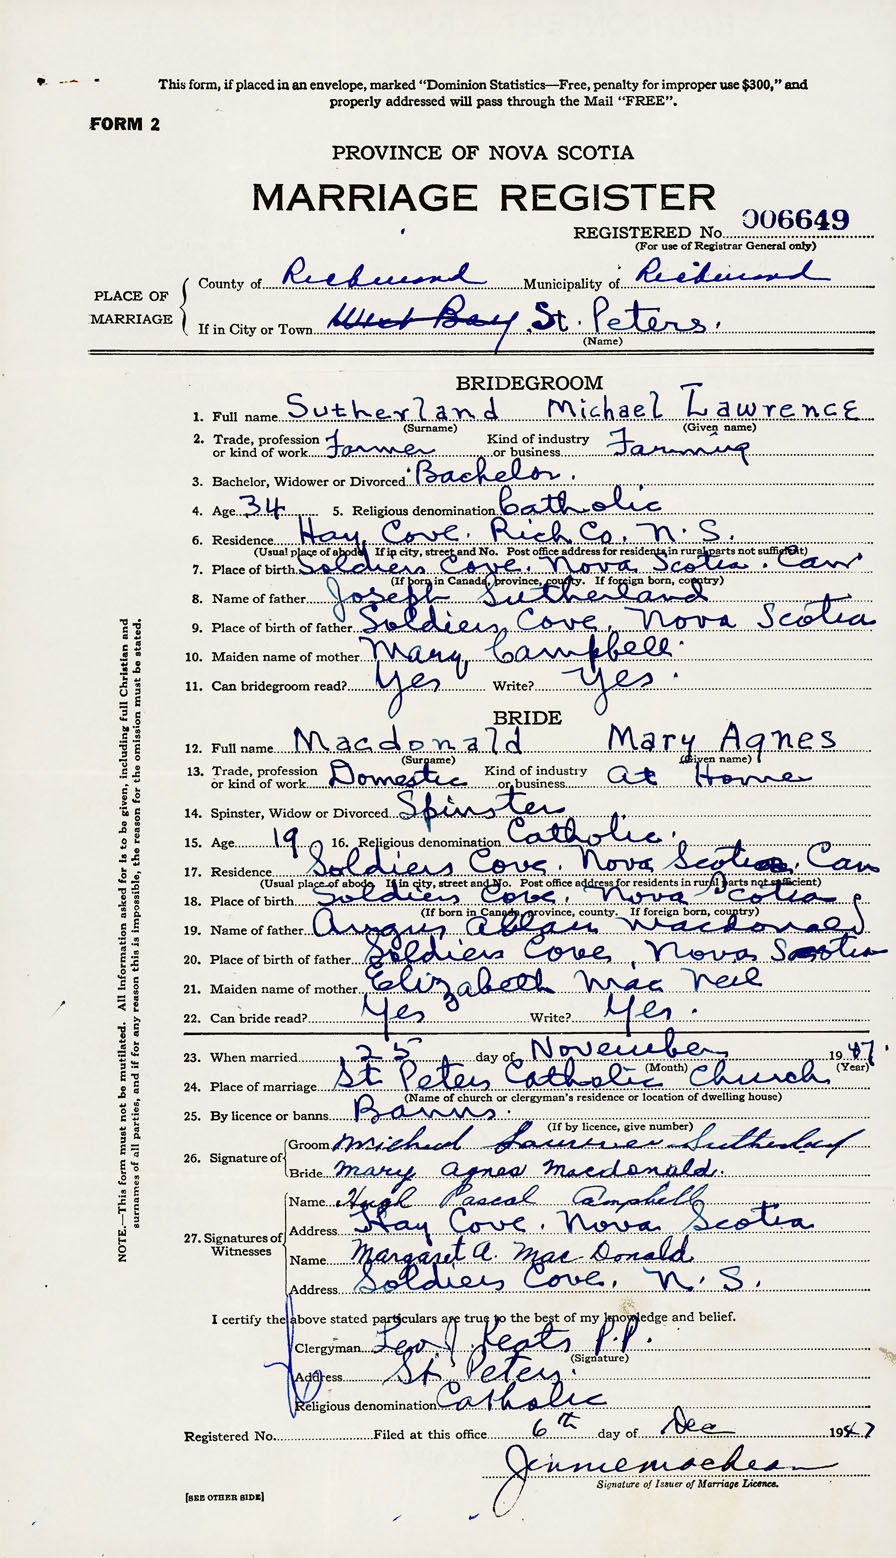 This form, if placed in an envelope, marked “Dominion Statistics—Free, penalty for improper use $300,” and
properly addressed will pass through the Mail “FREE”.
FORM 2
PROVINCE OF NOVA SCOTIA
MARRIAGE REGISTER
REGISTERED No. 006649
(For use of Registrar General only)
PLACE OF MARRIAGE
County of Richmond Municipality of Richmond
If in City or Town West Bay St. Peters.
(Name)
BRIDEGROOM
1. Full name Sutherland Michael Lawrence
(Surname) (Given name)
2. Trade, profession or kind of work Farmer Kind of industry or business Farming
3. Bachelor, Widower or Divorced Bachelor.
4. Age 34 5. Religious denomination Catholic
6. Residence Hay Cove. Rich. Co. N.S.
(Usual place of abode. If in city, street and No. Post office address for residents in rural parts not sufficient)
7. Place of birth Soldiers Cove, Nova Scotia. Can
(If born in Canada, province, county. If foreign born, country)
8. Name of father Joseph Sutherland
9. Place of birth of father Soldiers Cove, Nova Scotia
10. Maiden name of mother Mary Campbell
11. Can bridegroom read? Yes Write? Yes.
BRIDE
12. Full name Macdonald Mary Agnes
(Surname) (Given name)
13. Trade, profession or kind of work Domestic Kind of industry or business at Home
14. Spinster, Widow or Divorced Spinster
15. Age 19 16. Religious denomination Catholic.
17. Residence Soldiers Cove. Nova Scotia. Can
(Usual place of abode. If in city, street and No. Post office address for residents in rural parts not sufficient)
18. Place of birth Soldiers Cove. Nova Scotia
(If born in Canada, province, county. If foreign born, country)
19. Name of father Angus Allan Macdonald
20. Place of birth of father Soldiers Cove, Nova Scotia
21. Maiden name of mother Elizabeth Mac Neil
22. Can bride read? Yes Write? Yes.
23. When married 25 day of November 1947.
(Month) (Year)
24. Place of marriage St Peters Catholic Church
(Name of church or clergyman's residence or location of dwelling house)
25. By licence or banns Banns.
(If by licence, give number)
26. Signature of
Groom Michael Lawrence Sutherland
Bride Mary Agnes Macdonald.
27. Signatures of Witnesses
Name Hugh Pascal Campbell
Address Hay Cove. Nova Scotia
Name Margaret A. Mac Donald
Address Soldiers Cove, N.S.
I certify the above stated particulars are true to the best of my knowledge and belief.
Clergyman Leo J. Keats P.P.
(Signature)
Address St. Peters.
Religious denomination Catholic
Registered No. Filed at this office 6th day of Dec 1947
Signature of Issuer of Marriage Licence.
[SEE OTHER SIDE]
NOTE.—This form must not be mutilated. All information asked for is to be given, including full Christian and
surnames of all parties, and if for any reason this is impossible, the reason for the omission must be stated.